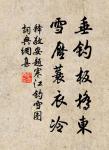 垂钓板桥东
雪压蓑衣冷
释敬安题寒江钓雪图
词典网集